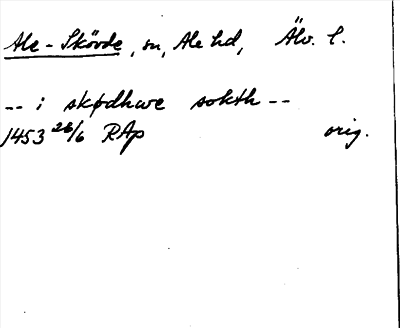 Ale-Skövde, sn, Ale hd, Älv. l.
-- i skødhwe sokth --
1453 26/6 RAp orig.